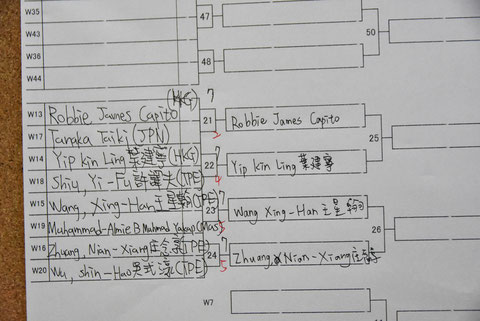 W35
47
W43
50
W36
48
W44
(HKG) 7
W13 Robbie James Capito
21 Robbie James Capito
W17 Tanaka Taiki (JPN)
25
W14 Yip Kin Ling 葉建寧 (HKG) 7
22 Yip Kin Ling 葉建寧
W18 Shiu, Yi-Fu (TPE)
W15 Wang, Xing-Han 王星翰 (TPE) 7
23 Wang Xing-Han 王星翰
W19 Muhammad-Almie B Mahmad (Mas)
26
W16 Zhuang, Nian-Xiang (TPE) 7
24 Zhuang, Nian-Xiang
W20 Wu, Shin-Hao (TPE) 5
W7